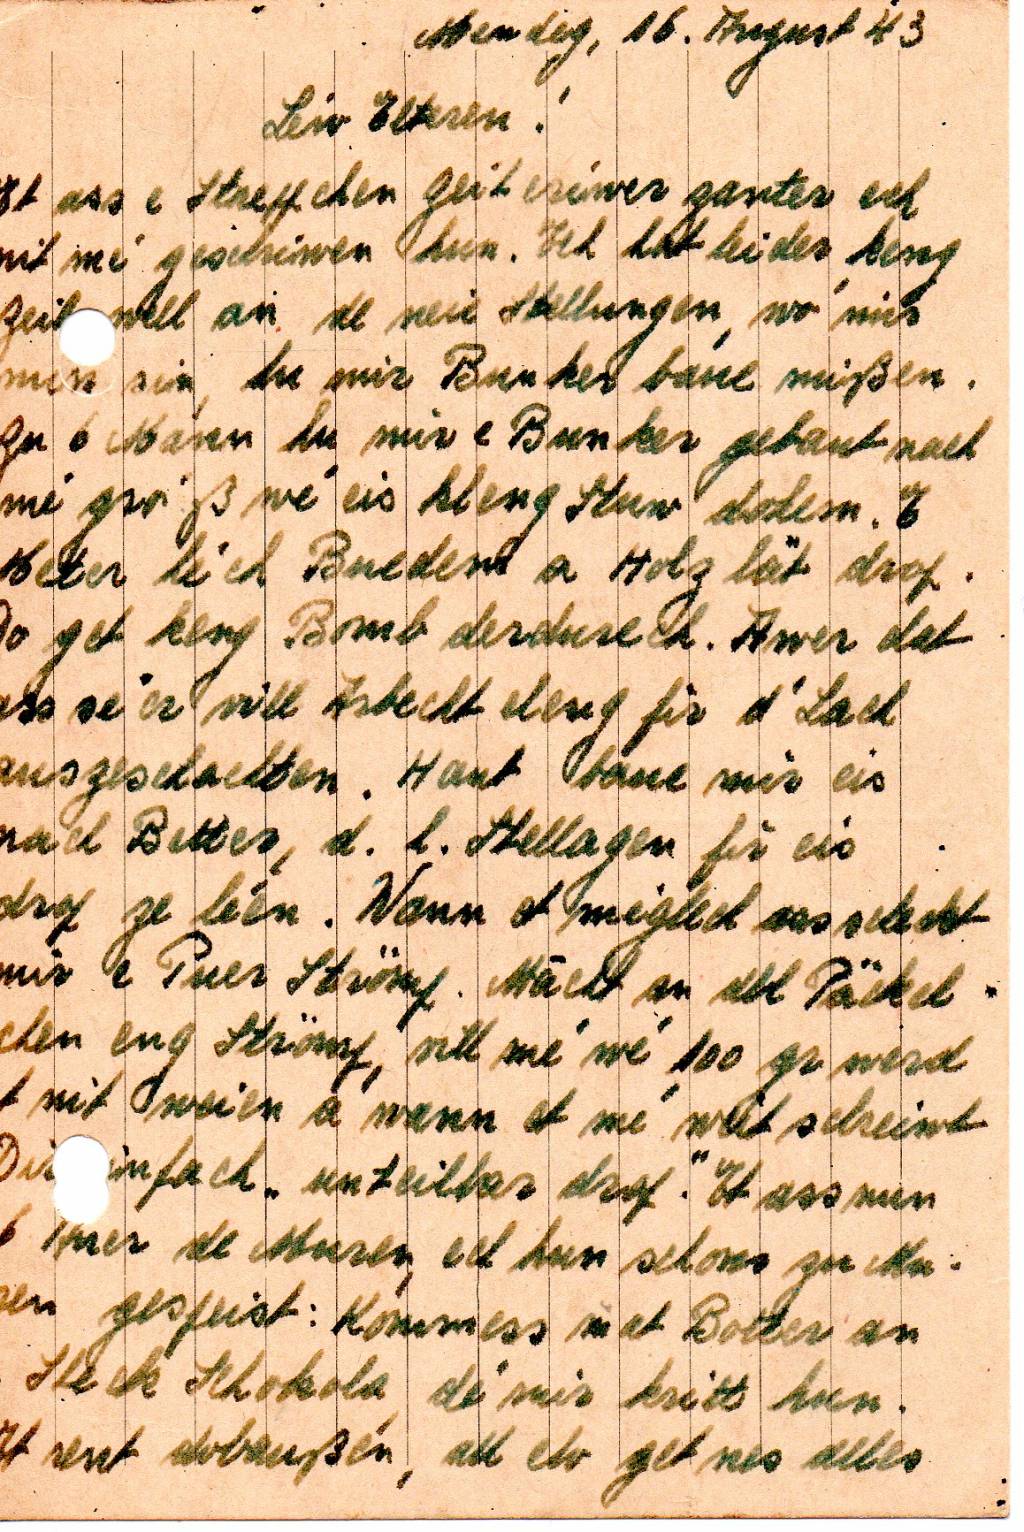 Mendeg, 16. August 43
Leiw Elteren!
Et ass e Streffchen Zeit eriwer zanter ech
nit mé geschriwen hun. Ech hat leider keng
Zeit well an de neie Stellungen, wo mir
nun sin, hu mir Bunker baue mißen.
Zu 6 Männ hu mir e Bunker gebaut nach
mé gro'ß wé eis kleng Stuw dohem. 6
Meter héch Buedem a Holz lät drof.
Do get keng Bomb derdurech. Awer dat
ass se'er vill Arbecht eleng fir d'Lach
ausgeschachten. Haut baue mir eis
nach Better, d. h. Stellagen fir eis
drof ze léen. Wann et miglech ass schekt
mir e Puer Strömp. Mächt an all Päckel-
chen eng Strömp, vill mé wé 100 gr werd
t nit weien a wann et mé weit schreiwt
Dir einfach „unteilbar drof." Et ass nun
6 Auer de Muren, ech hun schons zu Mu-
gen gespeist: Kommess mat Botter an
Steck Schokola, dé mir kritt hun.
Et rent dobaußén, all elo get nes alles